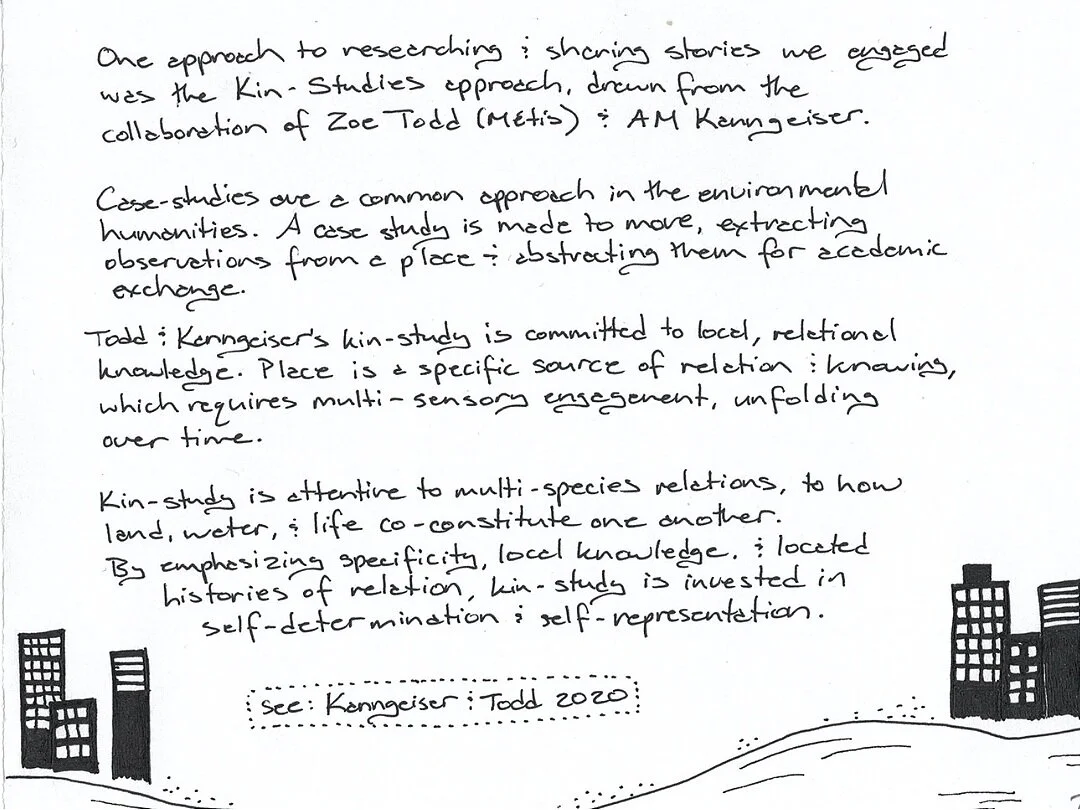 One approach to researching & sharing stories we engaged
was the Kin-Studies approach, drawn from the
collaboration of Zoe Todd (Métis) & AM Kanngeiser.
Case-studies are a common approach in the environmental
humanities. A case study is made to move, extracting
observations from a place & abstracting them for academic
exchange.
Todd & Kanngeiser's kin-study is committed to local, relational
knowledge. Place is a specific source of relation & knowing,
which requires multi-sensory engagement, unfolding
over time.
Kin-study is attentive to multi-species relations, to how
land, water, & life co-constitute one another.
By emphasizing specificity, local knowledge, & located
histories of relation, kin-study is invested in
self-determination & self-representation.
see: Kanngeiser & Todd 2020